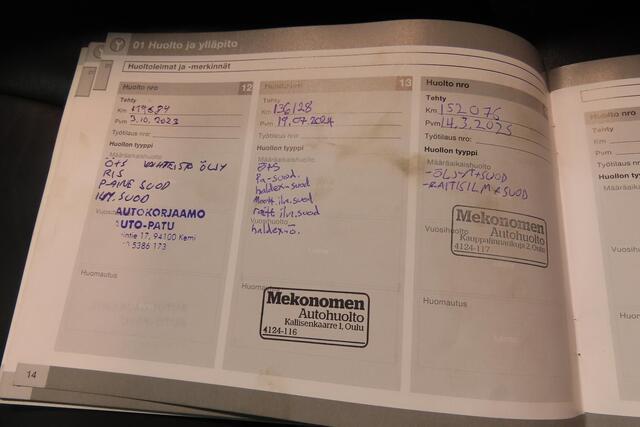 01 Huolto ja ylläpito
Huoltoleimat ja -merkinnät
Huolto nro 12
Tehty
Km 119684
Pvm 3.10.2023
Työtilaus nro:
Huollon tyyppi
Määräaikaishuolto
Ö+S VAIHTEISTO ÖLJY
RIS
PAINE SUOD
ILM. SUOD
Vuosihuolto
AUTOKORJAAMO
AUTO-PATU
ntie 17, 94100 Kemi
5386 173
Huomautus
14
13
Tehty
Km 136128
Pvm 19.07.2024
Työtilaus nro:
Huollon tyyppi
Määräaikaishuolto
Ö+S
Pa-suod.
haldex-suod
Moott.ilm.suod
raitt.ilm.suod
haldex-ö.
Huomautus
Mekonomen
Autohuolto
Kallisenkaarre 1, Oulu
4124-116
Huolto nro
Tehty
Km 152076
Pvm 14.3.2025
Työtilaus nro:
Huollon tyyppi
Määräaikaishuolto
-ÖLJY+SUOD
-RAITISILMASUOD
Vuosihuolto
Mekonomen
Autohuolto
Kauppalinnankuja 2, Oulu
4124-117
Huomautus
Huolto nro
Tehty
Km
Pvm
Työtilaus nro:
Huollon ty
Määräaika
Vuosihu
Huom